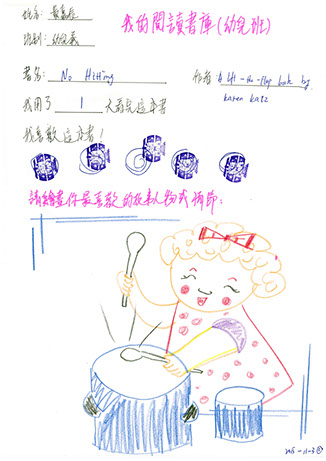 姓名:
我的閱讀書庫(幼兒班)
班別: 幼兒
書名: No Hitting
作者: A lift-the-flap book by
karen katz
我用了 1 天看完這本書
我喜歡這本書!
請繪畫你最喜歡的故事人物或情節: